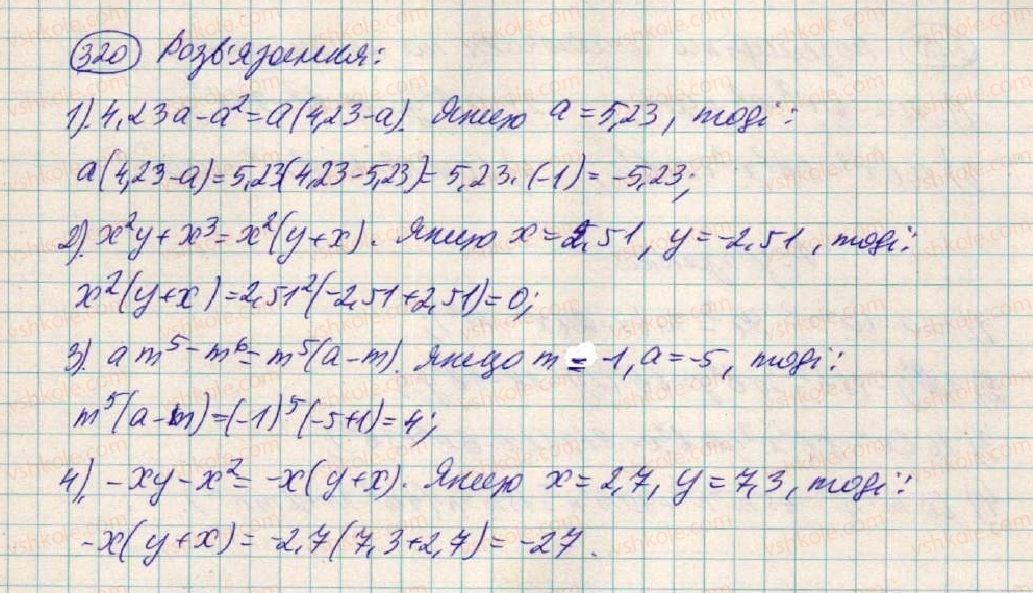 320 Розв'язання:
1). 4,23a - a² = a(4,23 - a). Якщо a = 5,23, тоді:
a(4,23 - a) = 5,23(4,23 - 5,23) = 5,23 · (-1) = -5,23;
2). x²y + x³ = x²(y + x). Якщо x = 2,51, y = -2,51, тоді:
x²(y + x) = 2,51²(-2,51 + 2,51) = 0;
3). am⁵ - m⁶ = m⁵(a - m). якщо m = -1, a = -5, тоді:
m⁵(a - m) = (-1)⁵(-5 + 1) = 4;
4). -xy - x² = -x(y + x). Якщо x = 2,7, y = 7,3, тоді:
-x(y + x) = -2,7(7,3 + 2,7) = -27.